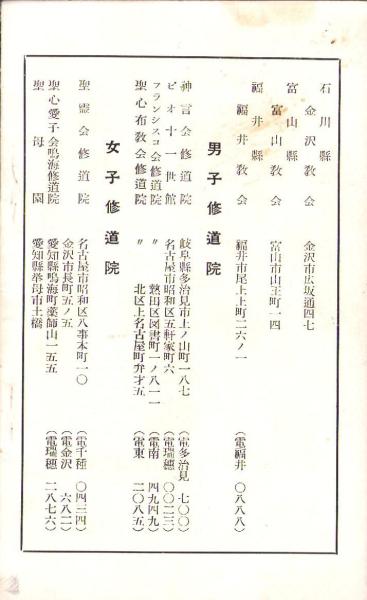 石川縣
金沢教会 金沢市広坂通四七
富山縣
富山教会 富山市山王町一四
福井縣
福井教会 福井市尾上上町二六ノ一 (電福井 〇八八八)
男子修道院
神言会修道院 岐阜縣多治見市土ノ山町一八七 (電多治見 七〇〇)
ピオ十一世館 名古屋市昭和区五軒家町六 (電瑞穂 〇〇二三)
フランシスコ会修道院 〃 熱田区図書町一ノ八一一 (電南 四九四九)
聖心布教会修道院 〃 北区上名古屋町弁才五 (電東 二〇八五)
女子修道院
聖霊会修道院 名古屋市昭和区八事本町一〇 (電千種 〇四三四)
金沢市長町五ノ五 (電金沢 六八二)
聖心愛子会鳴海修道院 愛知縣鳴海町薬師山一五五 (電瑞穂 二八七六)
聖母園 愛知縣挙母市土橋